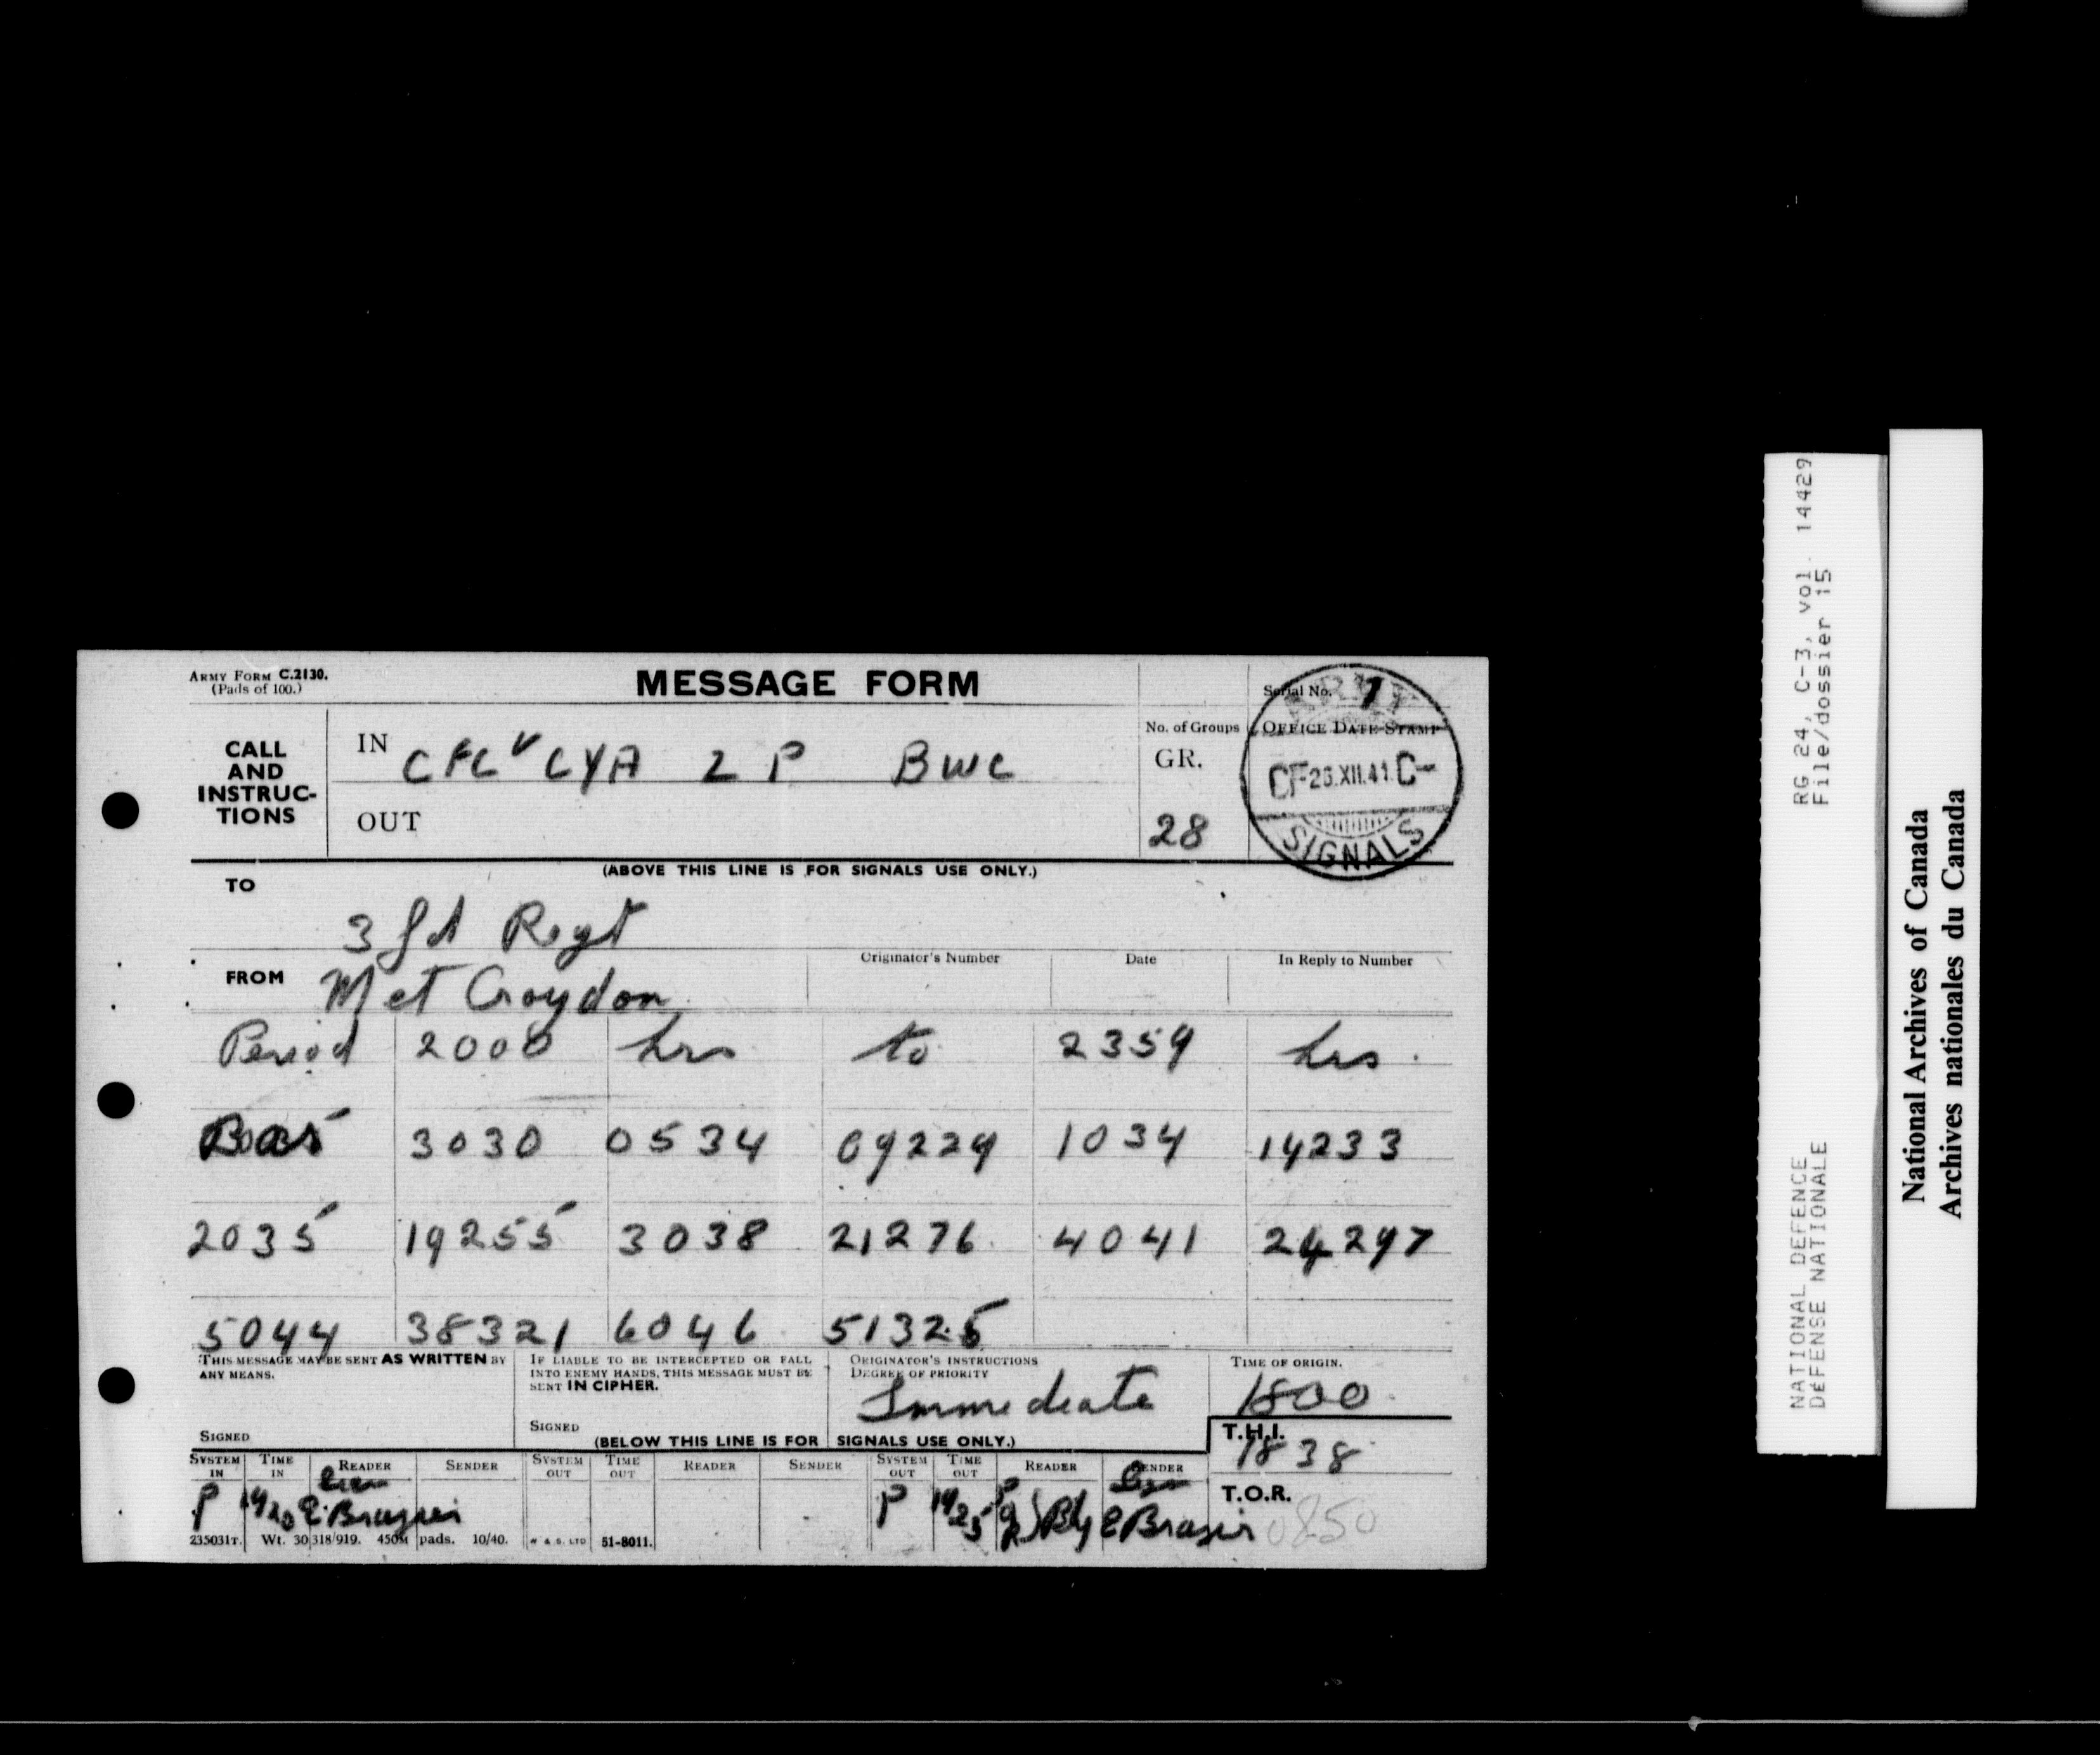 ARMY FORM C.2130.
(Pads of 100.)
MESSAGE FORM
Serial No. 1
CALL AND INSTRUC-TIONS
IN CFC V CYA 2 P BWC
OUT
No. of Groups
GR.
28
OFFICE DATE STAMP
ARMY
CF-26.XII.41.C-
SIGNALS
(ABOVE THIS LINE IS FOR SIGNALS USE ONLY.)
TO
3 fd Regt
FROM Met Croydon
Originator's Number
Date
In Reply to Number
Period 2000 hrs to 2359 hrs.
3030 0534 09229 1034 14233
2035 19255 3038 21276 4041 24297
5044 38321 6046 51325
THIS MESSAGE MAY BE SENT AS WRITTEN BY ANY MEANS.
SIGNED
IF LIABLE TO BE INTERCEPTED OR FALL INTO ENEMY HANDS, THIS MESSAGE MUST BE SENT IN CIPHER.
SIGNED
ORIGINATOR'S INSTRUCTIONS
DEGREE OF PRIORITY
Immediate
TIME OF ORIGIN.
1800
(BELOW THIS LINE IS FOR SIGNALS USE ONLY.)
T.H.I.
1838
SYSTEM IN TIME IN READER SENDER SYSTEM OUT TIME OUT READER SENDER SYSTEM OUT TIME OUT READER SENDER
P E Brasier P E Brasier
T.O.R.
0850
235031T. Wt. 30318/919. 450M pads. 10/40. W & S. LTD 51-8011.
RG 24, C-3, vol. 14429
File/dossier 15
NATIONAL DEFENCE
DÉFENSE NATIONALE
National Archives of Canada
Archives nationales du Canada